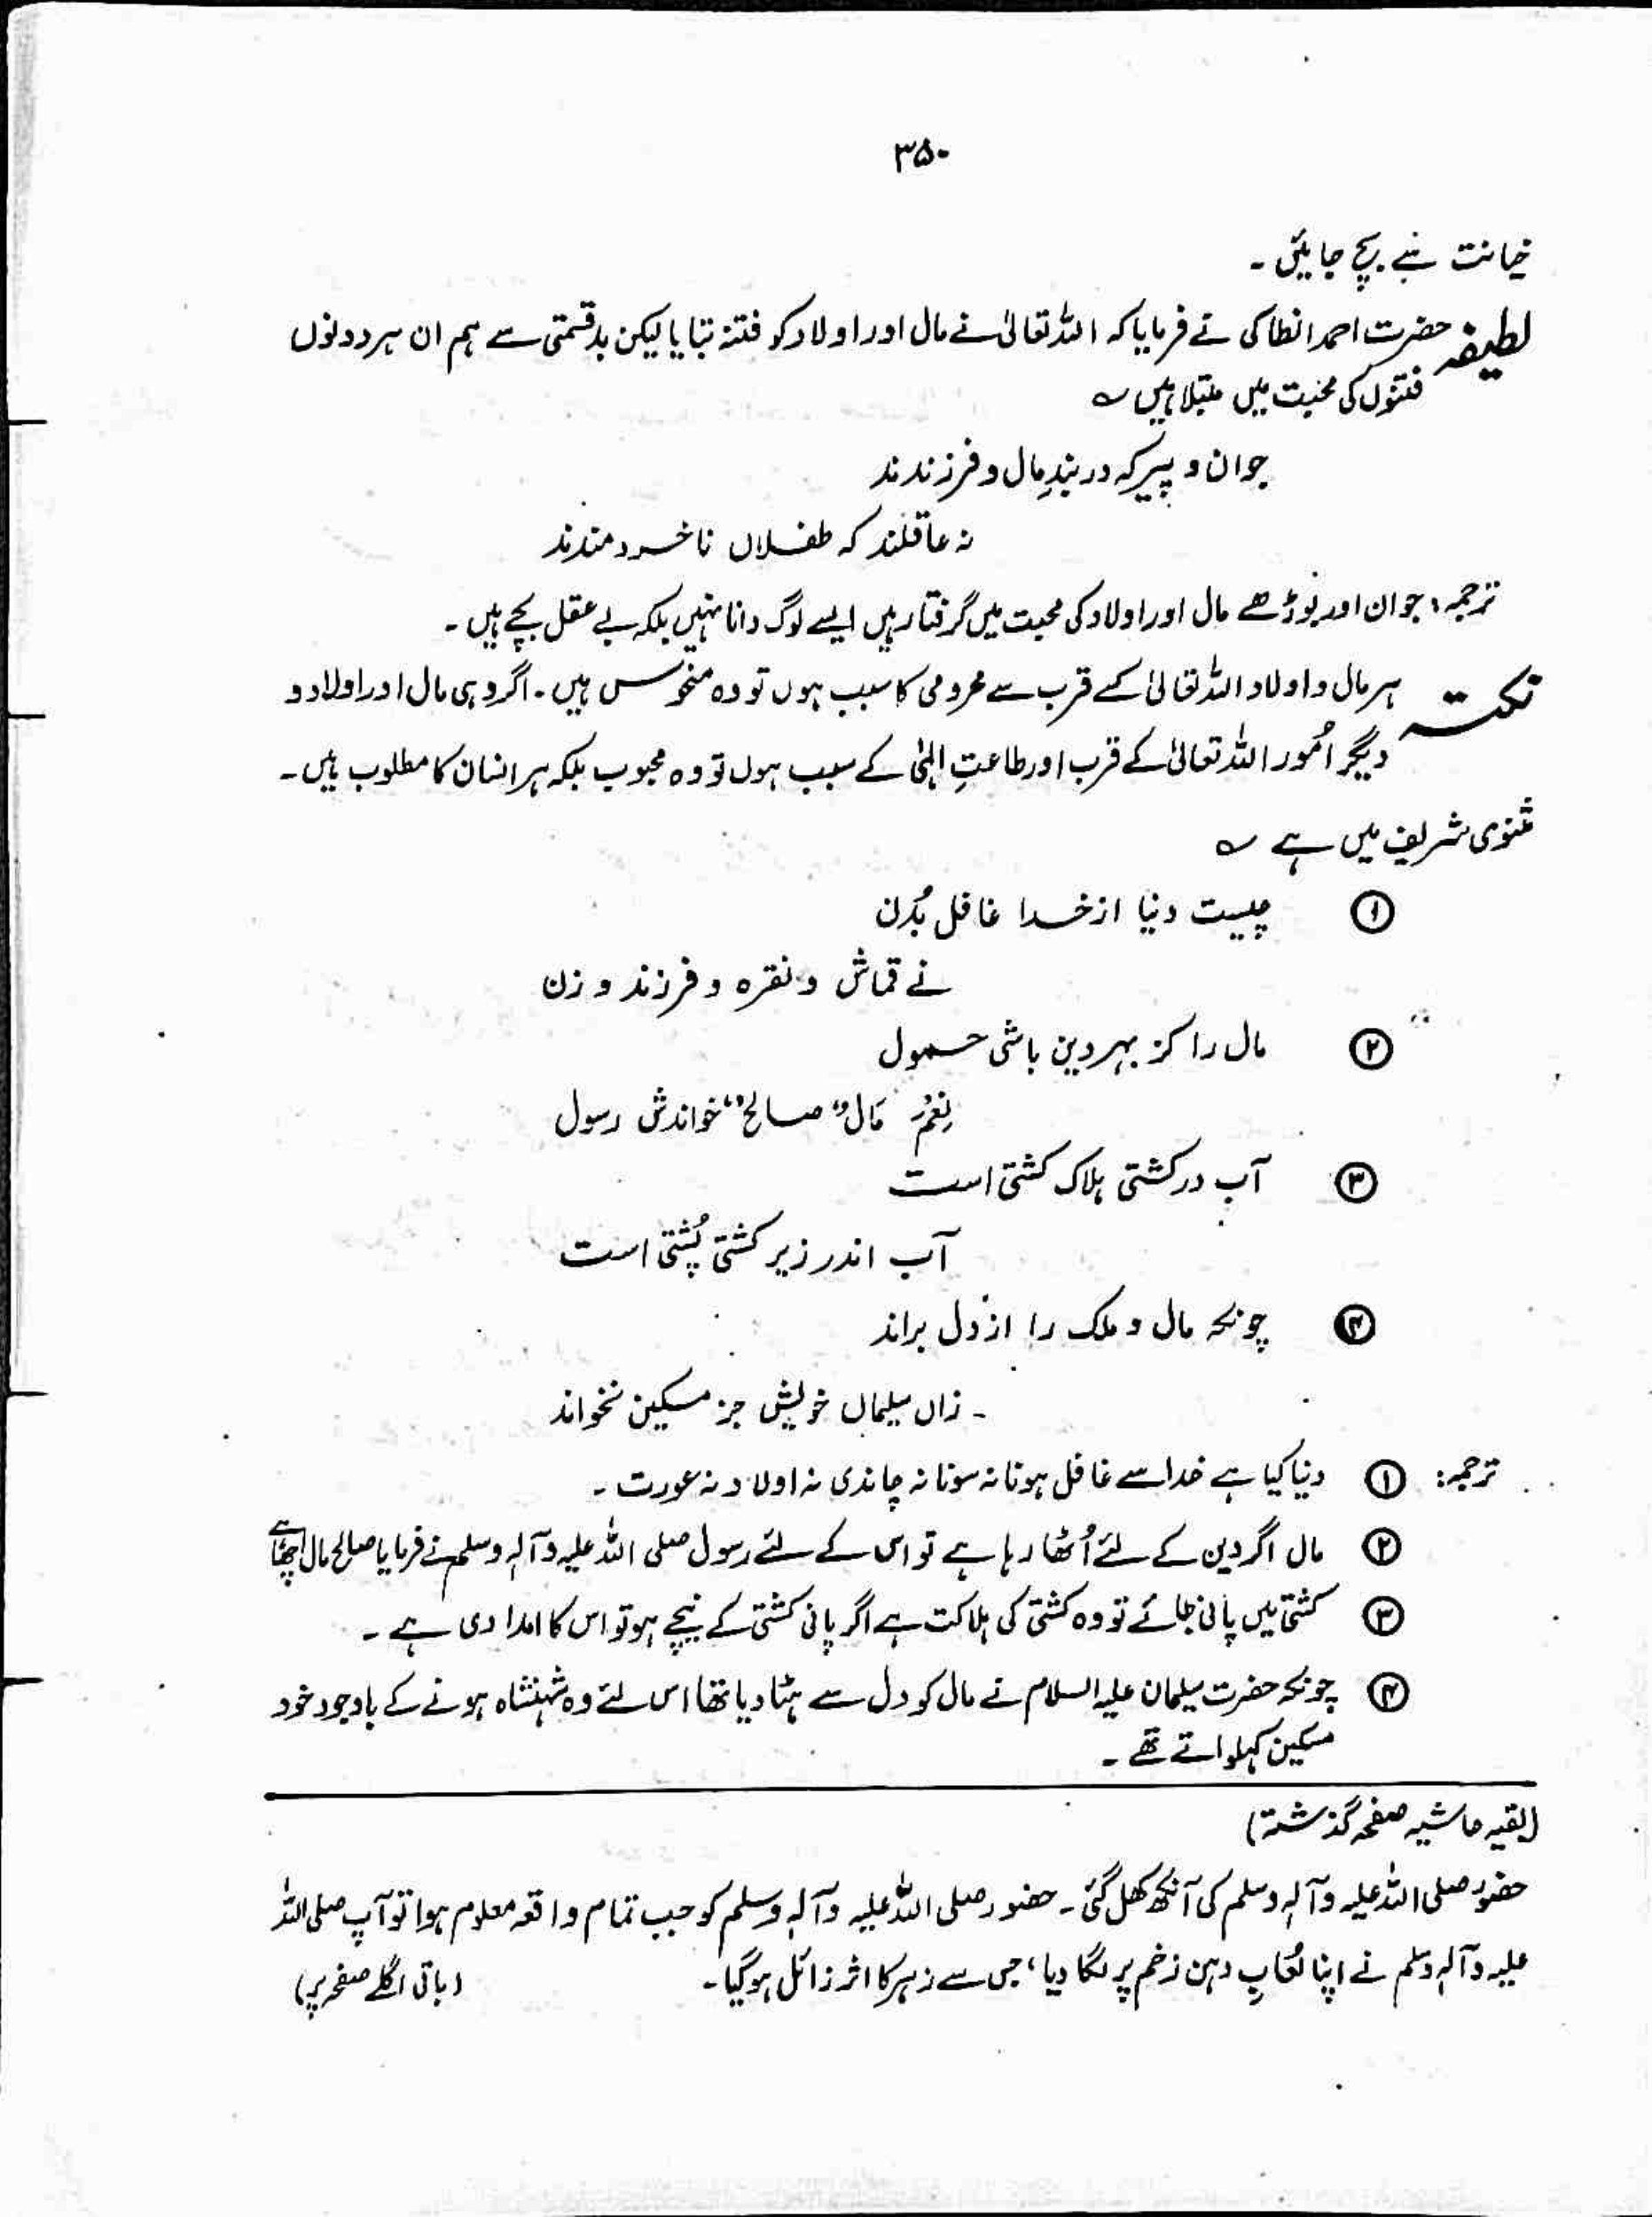 ۳۵۰
خیانت سے بچ جائیں ۔
لطیفہ حضرت احمد انطاکی نے فرمایا کہ اللہ تعالیٰ نے مال اور اولاد کو فتنہ بتایا لیکن بدقسمتی سے ہم ان ہر دونوں
فتنوں کی محبت میں مبتلا ہیں ؎
جوان و پیر کہ در بندِ مال و فرزندند
نہ عاقلند کہ طفلاں ناخردمندند
ترجمہ: جوان اور بوڑھے مال اور اولاد کی محبت میں گرفتار ہیں ایسے لوگ دانا نہیں بلکہ بے عقل بچے ہیں ۔
نکتہ ہر مال و اولاد اللہ تعالیٰ کے قرب سے محرومی کا سبب ہوں تو وہ منحوس ہیں ۔ اگر وہی مال اور اولاد و
دیگر اُمور اللہ تعالیٰ کے قرب اور طاعتِ الہٰی کے سبب ہوں تو وہ محبوب بلکہ ہر انسان کا مطلوب ہیں ۔
مثنوی شریف میں ہے ؎
① چیست دنیا از خدا غافل بُدن
نے قماش و نقرہ و فرزند و زن
② مال را کز بہر دین باشی حمول
نِعْمَ مَالٌ صالحٌ خواندش رسول
③ آب در کشتی ہلاک کشتی است
آب اندر زیر کشتی پُشتی است
④ چونکہ مال و ملک را از دل براند
۔ زاں سلیماں خویش جز مسکین نخواند
ترجمہ: ① دنیا کیا ہے خدا سے غافل ہونا نہ سونا نہ چاندی نہ اولاد نہ عورت ۔
② مال اگر دین کے لئے اُٹھا رہا ہے تو اس کے لئے رسول صلی اللہ علیہ وآلہ وسلم نے فرمایا صالح مال اچھا ہے
③ کشتی میں پانی جائے تو وہ کشتی کی ہلاکت ہے اگر پانی کشتی کے نیچے ہو تو اس کا امدادی ہے ۔
④ چونکہ حضرت سلیمان علیہ السلام نے مال کو دل سے ہٹا دیا تھا اس لئے وہ شہنشاہ ہونے کے باوجود خود
مسکین کہلواتے تھے ۔
(بقیہ حاشیہ صفحہ گذشتہ)
حضور صلی اللہ علیہ وآلہ وسلم کی آنکھ کھل گئی ۔ حضور صلی اللہ علیہ وآلہ وسلم کو جب تمام واقعہ معلوم ہوا تو آپ صلی اللہ
علیہ وآلہ وسلم نے اپنا لُعابِ دہن زخم پر لگا دیا، جس سے زہر کا اثر زائل ہوگیا ۔ (باقی اگلے صفحہ پر)